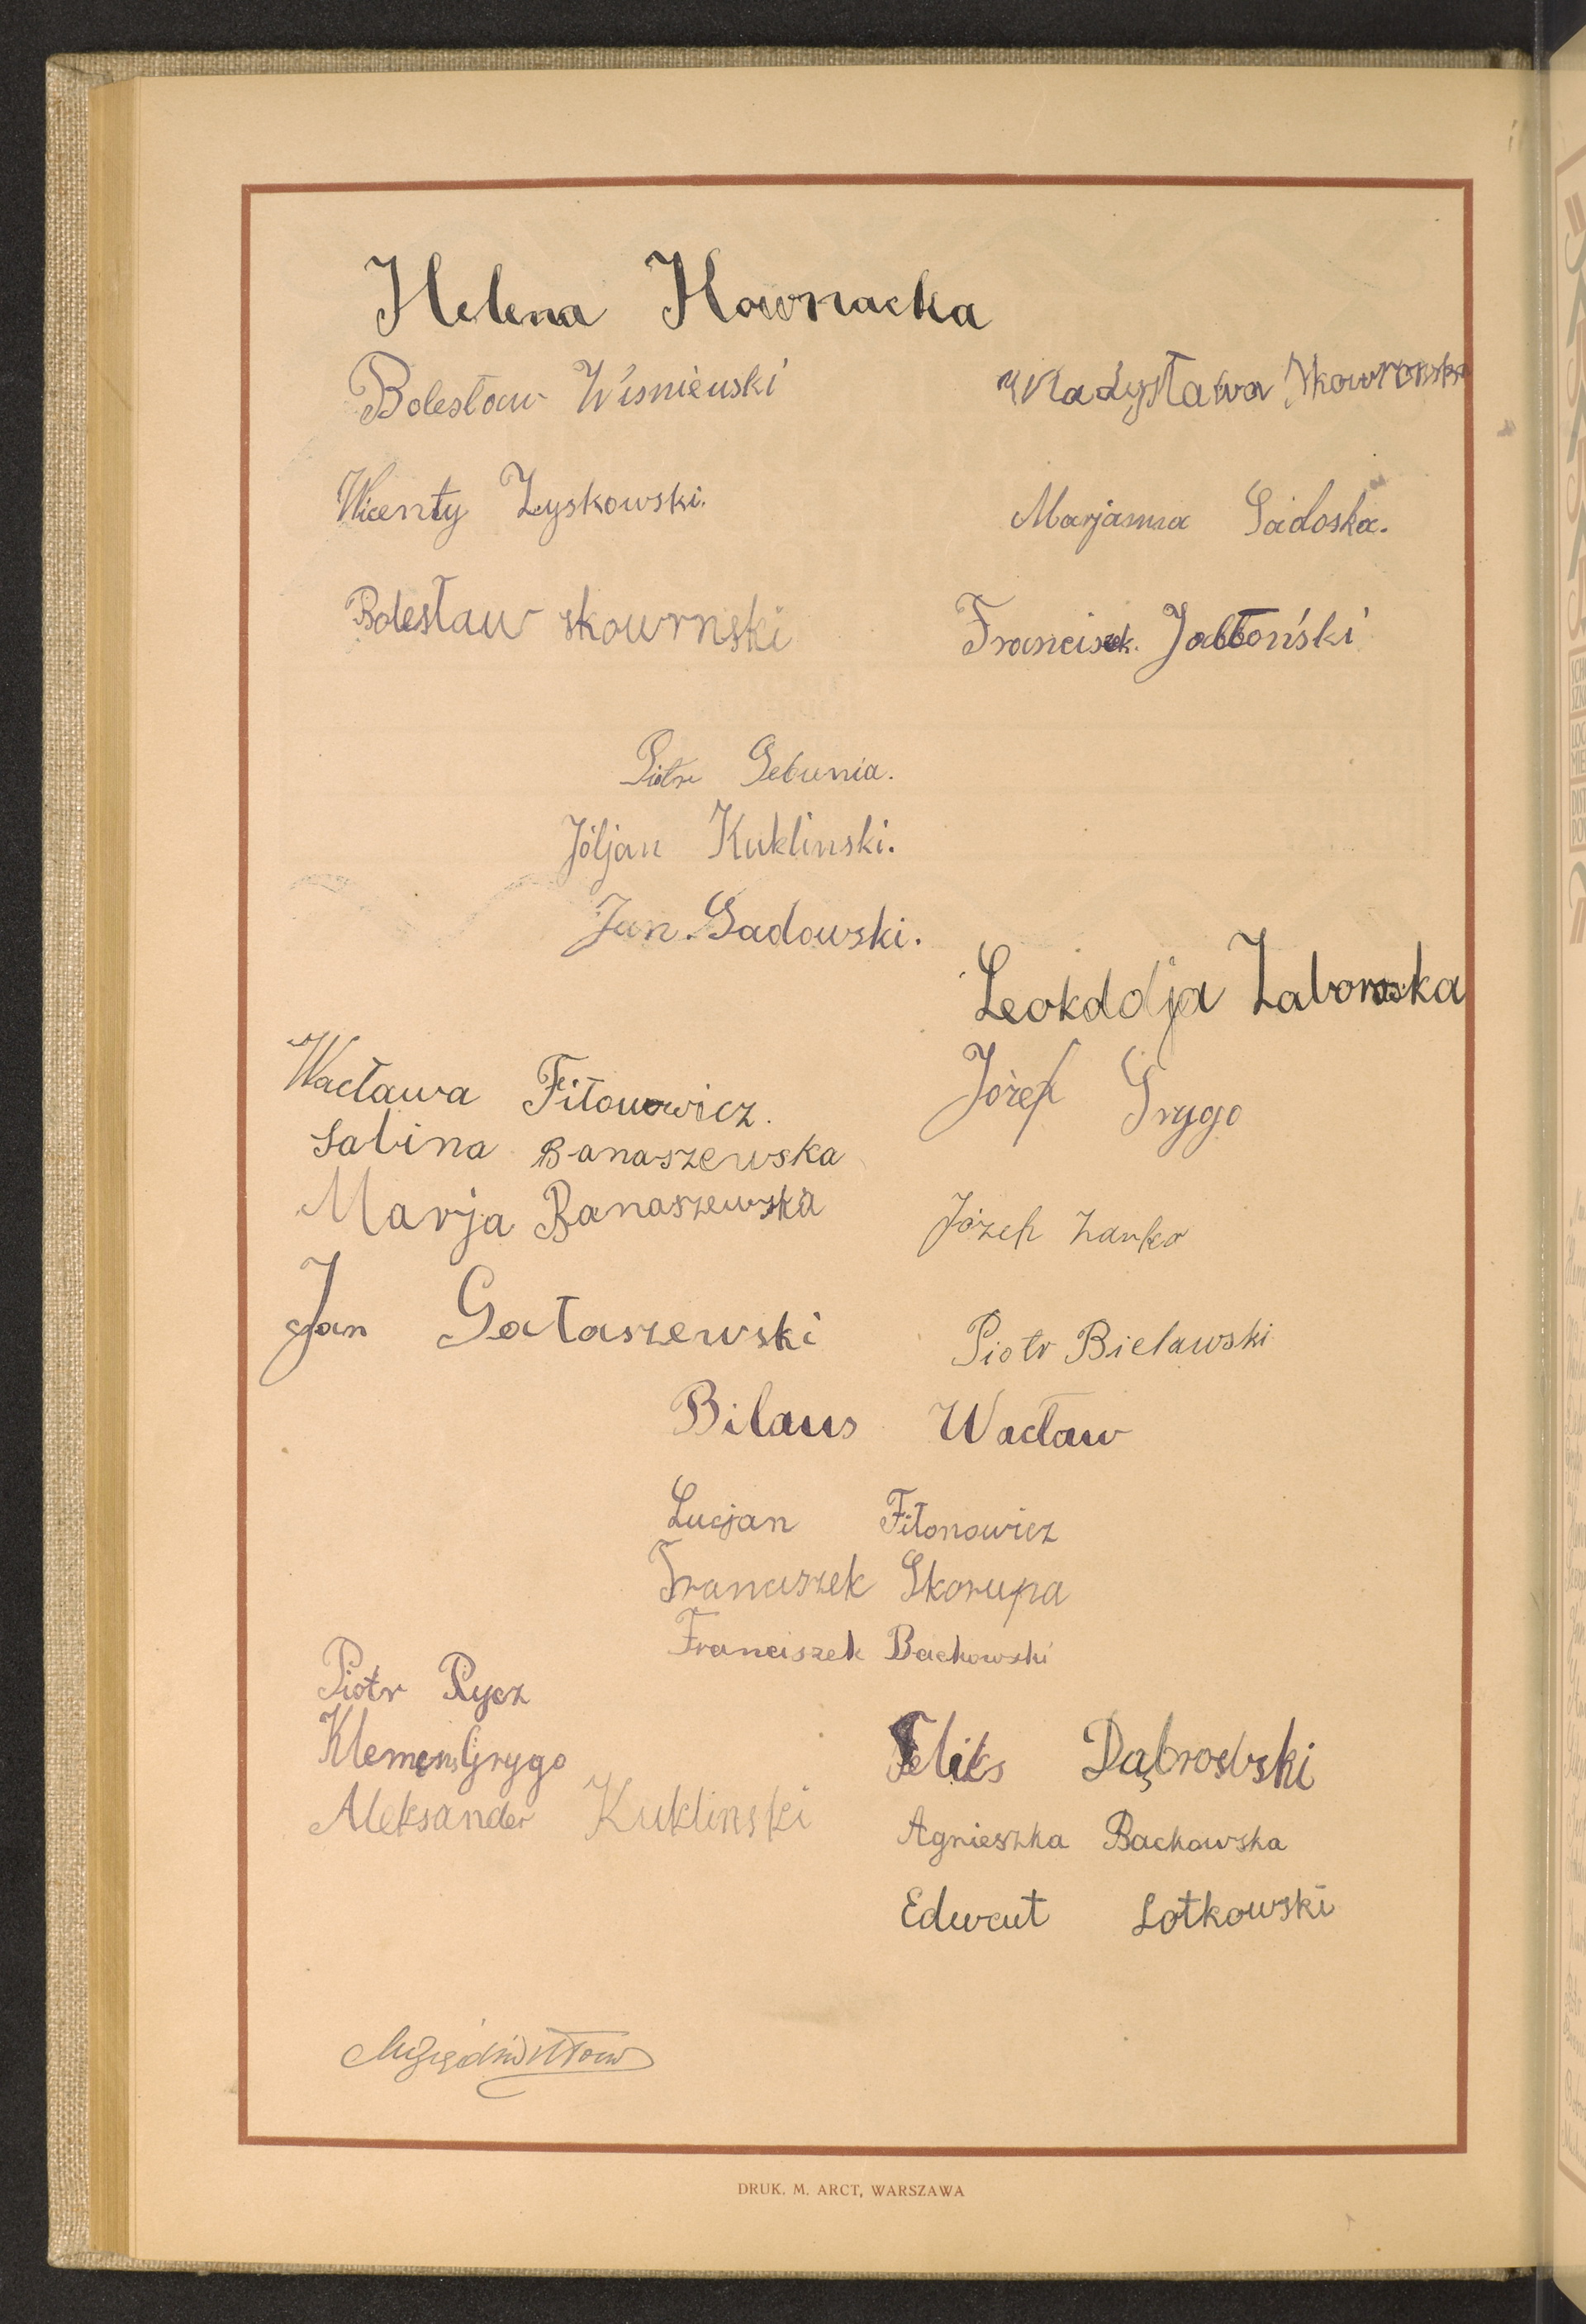 Helena Kownacka
Bolesław Wiśnieuski
Władysława Skowronska
Wicenty Zyskowski.
Marjanna Sadoska.
Bolesław skowrnski
Franciszek. Jabłoński
Piotr Gebunia.
Jóljan Kuklinski.
Jan. Sadowski.
Leokddja Zaborowska
Wacława Fiłonowicz.
Józef Grygo
Sabina Banaszewska
Marja Banaszewska
Józef Zanko
Jan Gołaszewski
Piotr Bielawski
Bilaus Wacław
Lucjan Fiłonowicz
Franciszek Skorupa
Franciszek Backowski
Piotr Rycz
Klemens Grygo
Feliks Dąbrowski
Aleksander Kuklinski
Agnieszka Backowska
Edwart Lotkowski
DRUK. M. ARCT, WARSZAWA